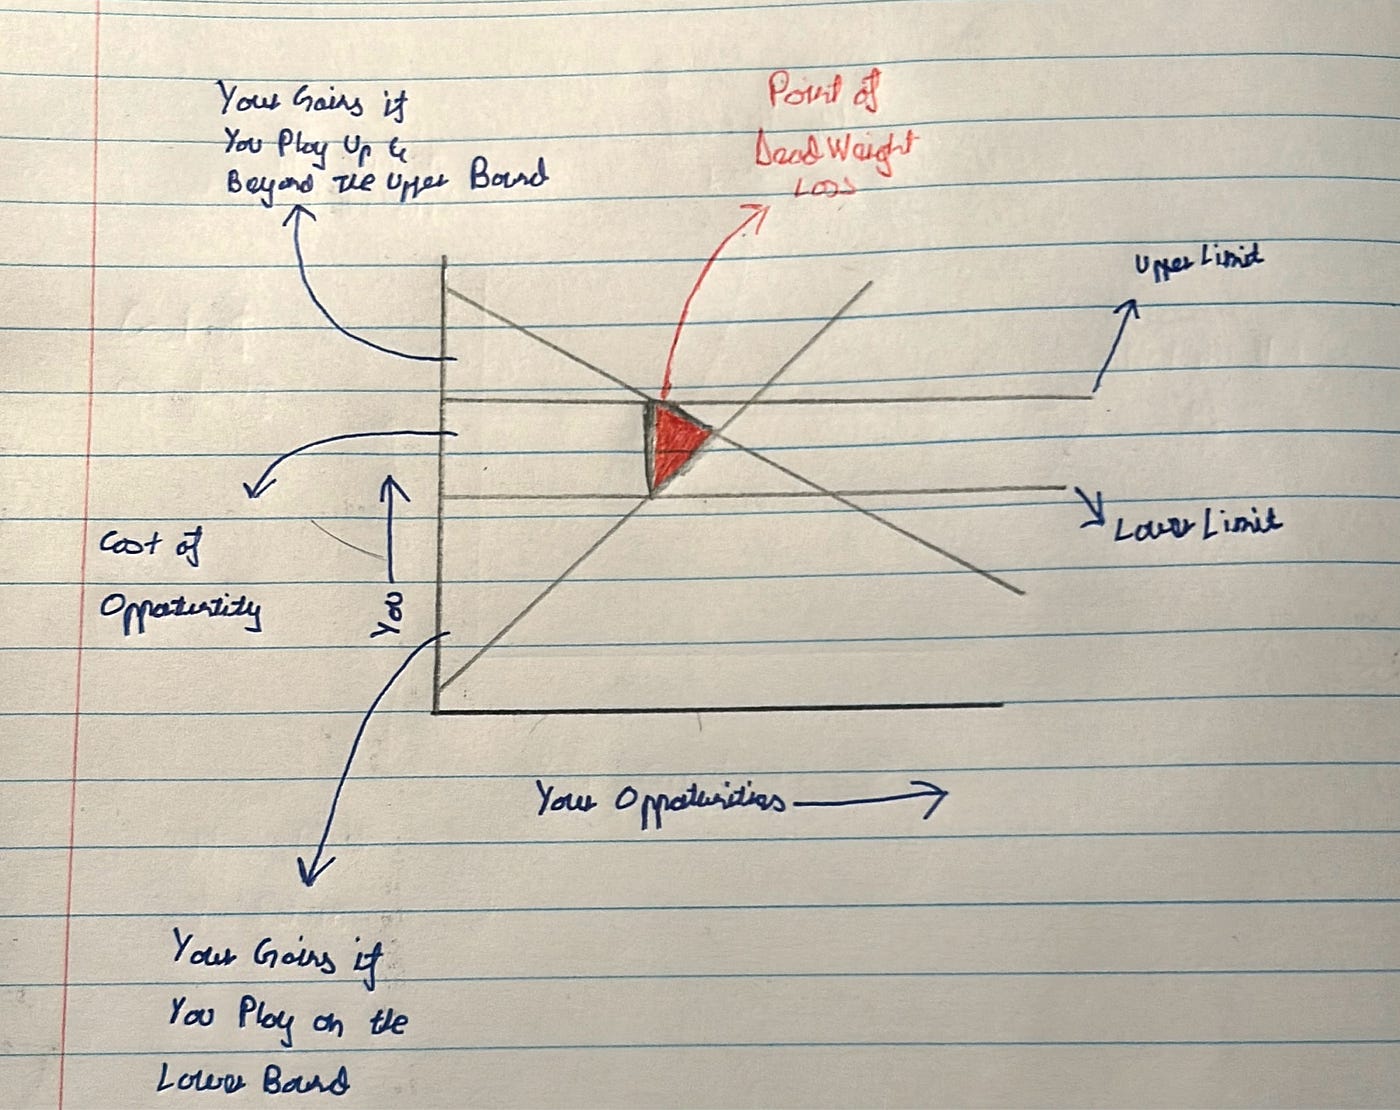 Your Gains if
You Play Up &
Beyond The Upper Bound
Point of
Dead Weight
Loss
Upper Limit
Cost of
Opportunity
You
Lower Limit
Your Opportunities
Your Gains if
You Play on the
Lower Bound